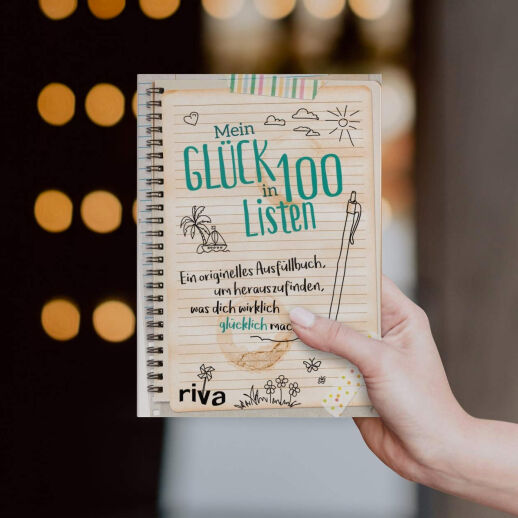 Mein
GLÜCK
in 100
Listen
Ein originelles Ausfüllbuch,
um herauszufinden,
was dich wirklich
glücklich mac
riva